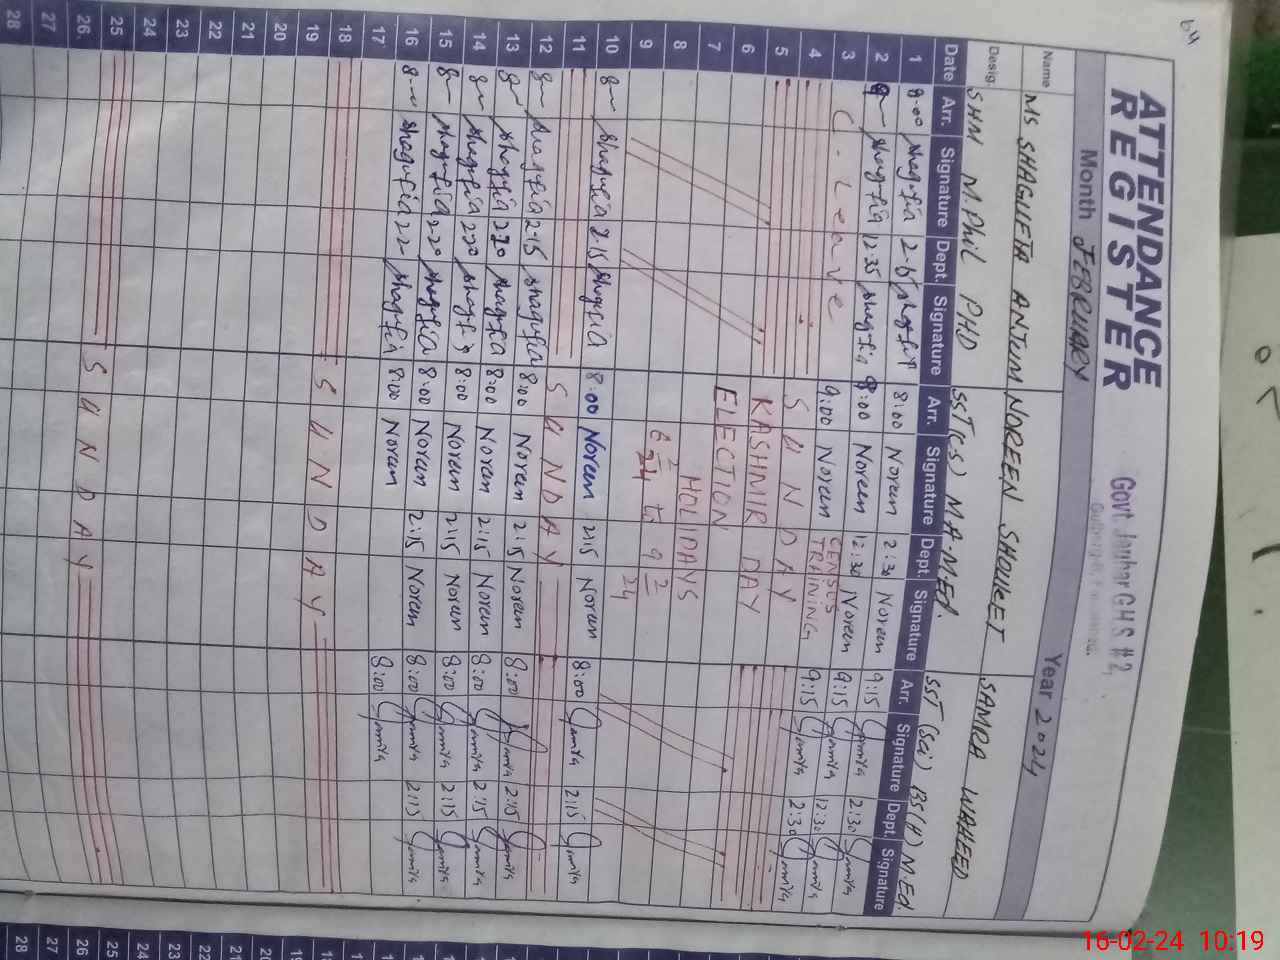 64
ATTENDANCE
REGISTER
Govt. Jauhar G H S # 2,
Month FEBRUARY Year 2024
Name MS SHAGUFTA ANJUM NOREEN SHOUKET SAMRA WAHEED
Desig. SHM M.Phil PHD SST(CS) MA-M.Ed. SST (Sci) BS(H) M.Ed.
Date Arr. Signature Dept. Signature Arr. Signature Dept. Signature Arr. Signature Dept. Signature
1 8:00 shagufta 2-15 shagufta 8:00 Noreen 2:30 Noreen 9:15 Samra 2:30 Samra
2 8 shagufta 12:35 shagufta 8:00 Noreen 12:30 Noreen 9:15 Samra 12:30 Samra
3 C. Leave 9:00 Noreen CENSUS TRAINING 9:15 Samra 2:30 Samra
4 SUNDAY
5 KASHMIR DAY
6 ELECTION
7 HOLIDAYS
8 6-2-24 to 9-2-24
9
10 8 shagufta 2-15 shagufta 8:00 Noreen 2:15 Noreen 8:00 Samra 2:15 Samra
11 SUNDAY
12 8 shagufta 2-15 shagufta 8:00 Noreen 2:15 Noreen 8:00 Samra 2:15 Samra
13 8 shagufta 220 shagufta 8:00 Noreen 2:15 Noreen 8:00 Samra 2:15 Samra
14 8 shagufta 220 shagufta 8:00 Noreen 2:15 Noreen 8:00 Samra 2:15 Samra
15 8 shagufta 220 shagufta 8:00 Noreen 2:15 Noreen 8:00 Samra 2:15 Samra
16 8 shagufta 22 shagufta 8:00 Noreen 8:00 Samra
17
18 SUNDAY
19
20
21
22
23
24
25 SUNDAY
26
27
28
16-02-24 10:19